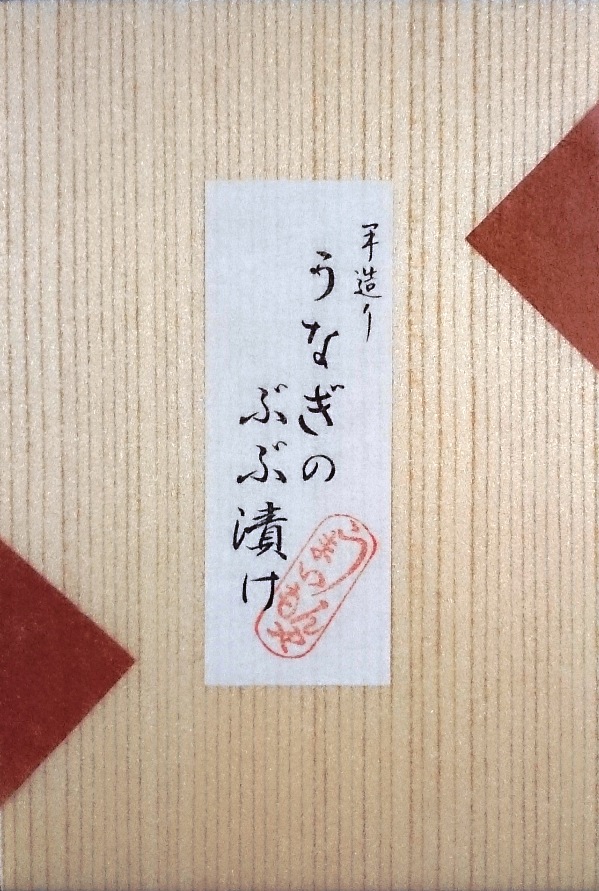 手造り
うなぎの
ぶぶ漬け